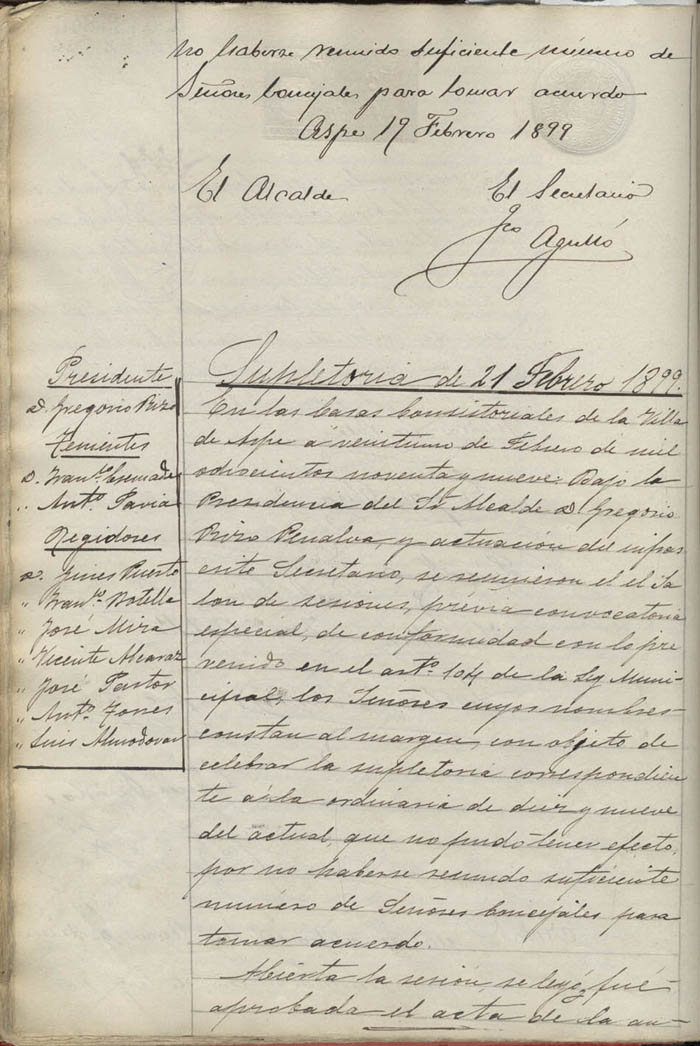 no haberse reunido suficiente número de
Señores Concejales para tomar acuerdo
Aspe 19 Febrero 1899
El Alcalde
El Secretario
Fco Agulló
Presidente
D. Gregorio Rizo
Tenientes
D. Franco. Cremades
" Anto. Pavia
Regidores
D. Gines Puerto
" Franco. Botella
" José Mira
" Vicente Alcaraz
" José Pastor
" Anto. Torres
" Luis Almodovar
Supletoria de 21 Febrero 1899.
En las Casas Consistoriales de la Villa
de Aspe á veintiuno de Febrero de mil
ochocientos noventa y nueve: Bajo la
Presidencia del Sr. Alcalde D. Gregorio
Rizo Penalva, y actuación del infras
crito Secretario, se reunieron el el Sa
lon de sesiones, prévia convocatoria
especial, de conformidad con lo pre
venido en el arto. 104 de la Ley Muni-
cipal, los Señores cuyos nombres
constan al margen, con objeto de
celebrar la supletoria correspondien
te á la ordinaria de diez y nueve
del actual, que no pudo tener efecto,
por no haberse reunido suficiente
numéro de Señores Concejales para
tomar acuerdo.
Abierta la sesión, se leyó, fué
aprobada el acta de la an-